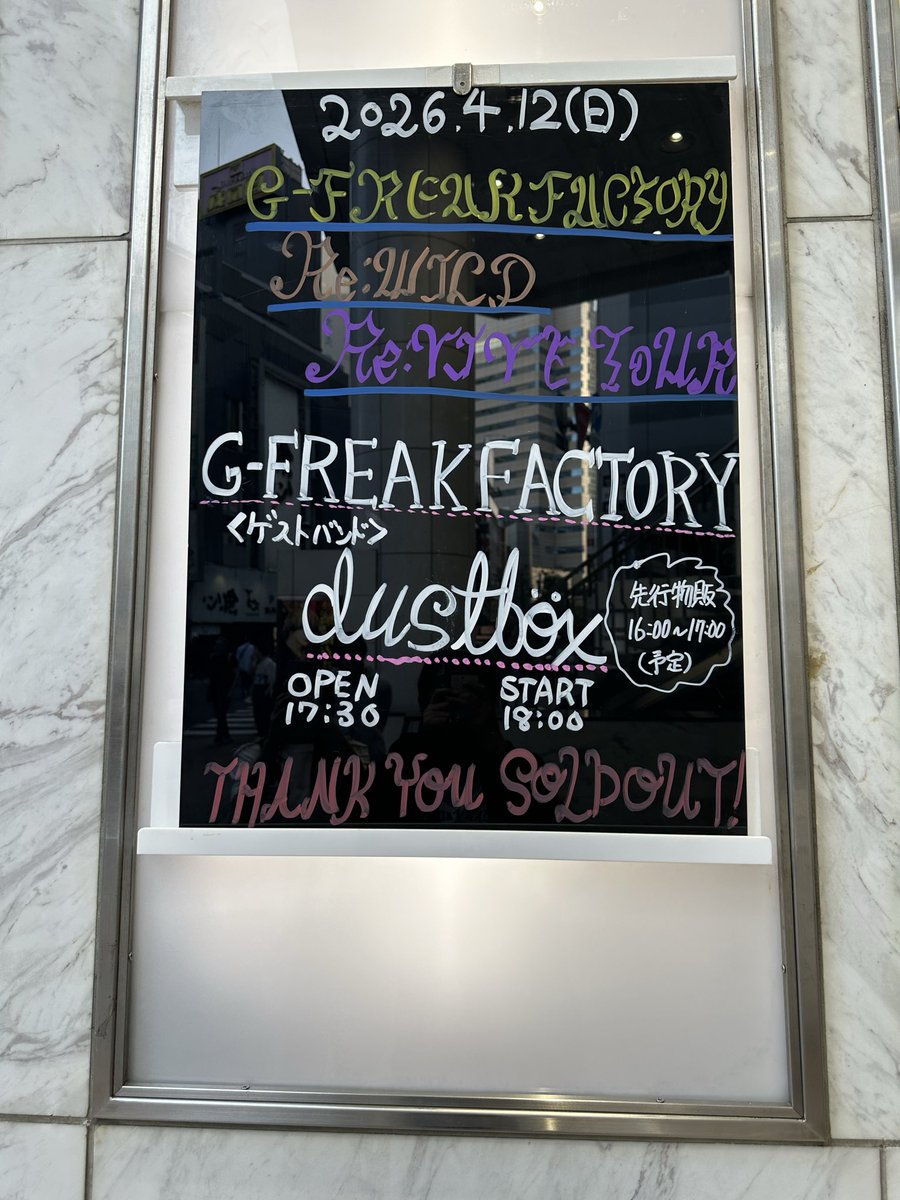 2026.4.12(日)
G-FREAK FACTORY
Re:WILD
Re:VIVE TOUR
G-FREAK FACTORY
<ゲストバンド>
dustböx
先行物販
16:00~17:00
(予定)
OPEN
17:30
START
18:00
THANK YOU SOLDOUT!